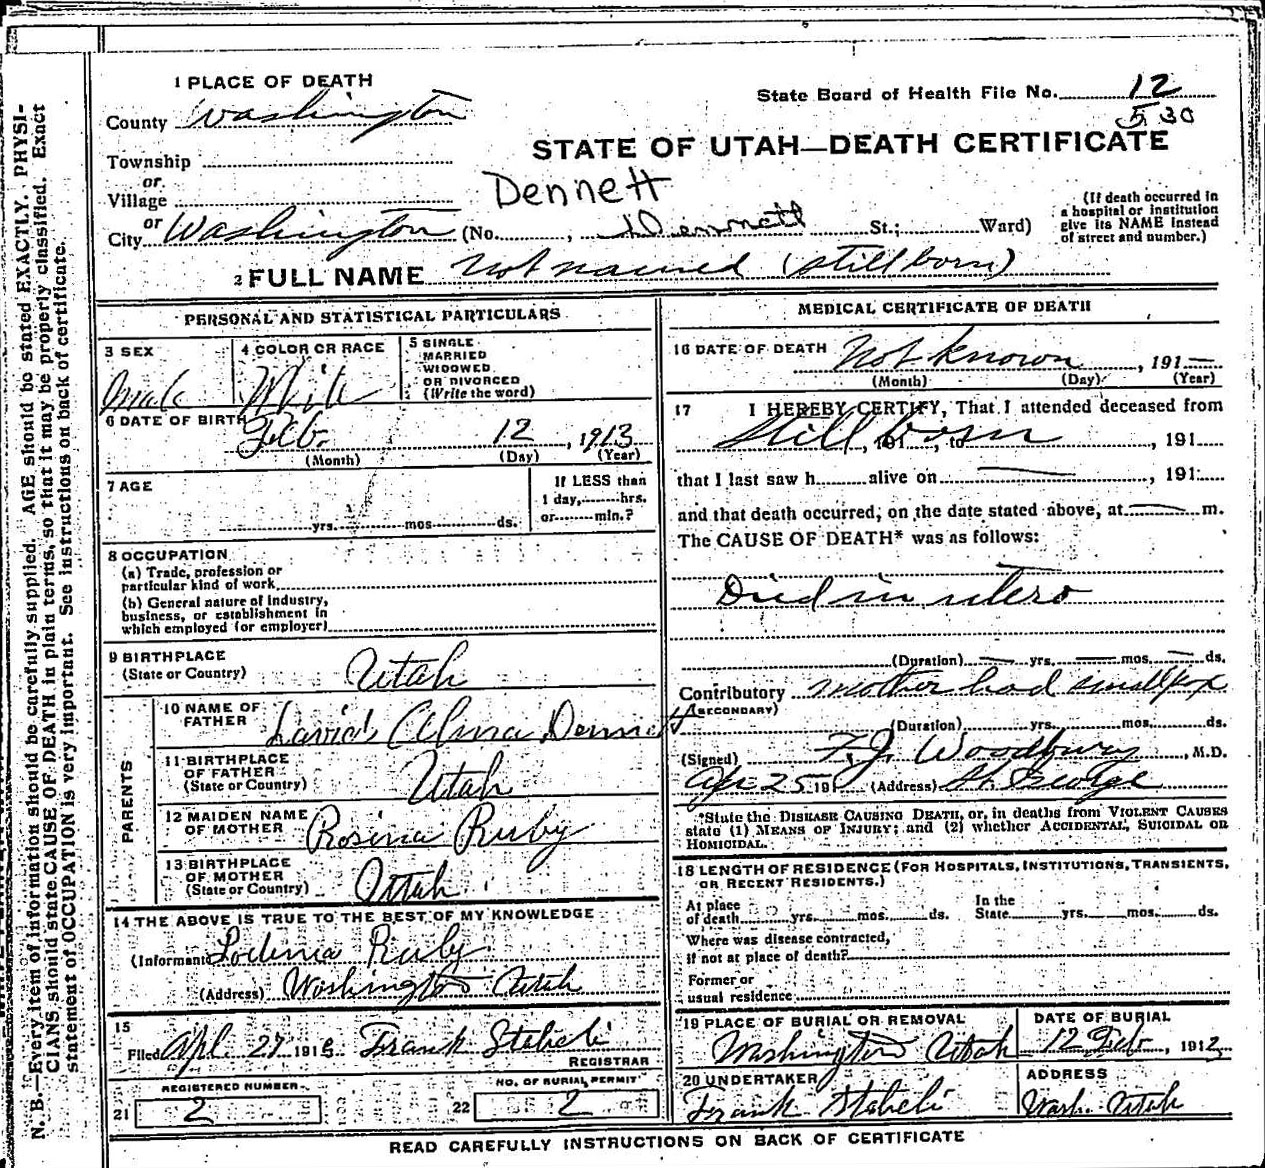 1 PLACE OF DEATH
County Washington
State Board of Health File No. 12
5 30
STATE OF UTAH—DEATH CERTIFICATE
Township
or
Village
or
City Washington (No. , Dennett St.; Ward)
Dennett
(If death occurred in
a hospital or institution
give its NAME instead
of street and number.)
2 FULL NAME Not named (still born)
PERSONAL AND STATISTICAL PARTICULARS
3 SEX
Male
4 COLOR OR RACE
White
5 SINGLE
MARRIED
WIDOWED
OR DIVORCED
(Write the word)
6 DATE OF BIRTH
Feb. 12, 1913
(Month) (Day) (Year)
7 AGE
yrs. mos. ds.
If LESS than
1 day, hrs.
or min.?
8 OCCUPATION
(a) Trade, profession or
particular kind of work
(b) General nature of industry,
business, or establishment in
which employed (or employer)
9 BIRTHPLACE
(State or Country) Utah
PARENTS
10 NAME OF
FATHER David Alma Dennett
11 BIRTHPLACE
OF FATHER
(State or Country) Utah
12 MAIDEN NAME
OF MOTHER Rosina Ruby
13 BIRTHPLACE
OF MOTHER
(State or Country) Utah
14 THE ABOVE IS TRUE TO THE BEST OF MY KNOWLEDGE
(Informant) Ruby
(Address) Washington Utah
15
Filed Apl. 27 191 Frank Staheli
REGISTRAR
REGISTERED NUMBER
21 2
NO. OF BURIAL PERMIT
22 2
MEDICAL CERTIFICATE OF DEATH
16 DATE OF DEATH Not known, 191
(Month) (Day) (Year)
17 I HEREBY CERTIFY, That I attended deceased from
Still born, 191 , to , 191
that I last saw h alive on , 191
and that death occurred, on the date stated above, at m.
The CAUSE OF DEATH* was as follows:
Died in utero
(Duration) yrs. mos. ds.
Contributory mother had smallpox
(SECONDARY)
(Duration) yrs. mos. ds.
(Signed) F. J. Woodbury, M.D.
Apr 25 191 (Address) St. George
*State the DISEASE CAUSING DEATH, or, in deaths from VIOLENT CAUSES
state (1) MEANS OF INJURY; and (2) whether ACCIDENTAL, SUICIDAL OR
HOMICIDAL.
18 LENGTH OF RESIDENCE (FOR HOSPITALS, INSTITUTIONS, TRANSIENTS,
OR RECENT RESIDENTS.)
At place
of death yrs. mos. ds.
In the
State yrs. mos. ds.
Where was disease contracted,
if not at place of death?
Former or
usual residence
19 PLACE OF BURIAL OR REMOVAL
Washington Utah
DATE OF BURIAL
12 Feb, 1913
20 UNDERTAKER
Frank Staheli
ADDRESS
Wash. Utah
READ CAREFULLY INSTRUCTIONS ON BACK OF CERTIFICATE
N. B.—Every item of information should be carefully supplied. AGE should be stated EXACTLY. PHYSI-
CIANS should state CAUSE OF DEATH in plain terms, so that it may be properly classified. Exact
statement of OCCUPATION is very important. See instructions on back of certificate.